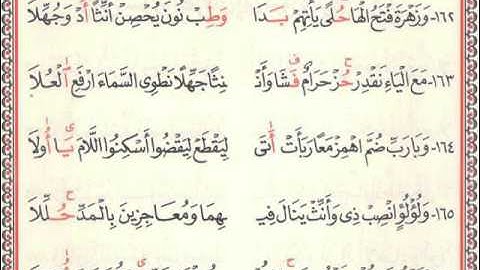 ١٦٢- وَزَهْرَةَ فَتْحُ الْهَا حُلًى يَأْتِهِمْ بَدَا وَطِبْ نُونَ يُحْصِنْ أَنِّثًا أُدْ وَجُهِّلَا
١٦٣- مَعَ الْيَاءِ نَقْدِرْ حُزْ حَرَامٌ فَشَا وَأَنْ نِثًا جَهِّلًا نَطْوِي السَّمَاءَ ارْفَعِ الْعُلَا
١٦٤- وَبَا رَبِّ ضُمَّ اهْمِزْ مَعًا رَبَأَتْ أَتَى لِيَقْطَعْ لِيَقْضُوا أَسْكِنُوا اللَّامَ يَا أُولَا
١٦٥- وَلُؤْلُؤًا انْصِبْ ذِي وَأَنِّثْ يَنَالُ فِيـ ـهِمَا وَمُعَاجِزِينَ بِالْمَدِّ حُلِّلَا